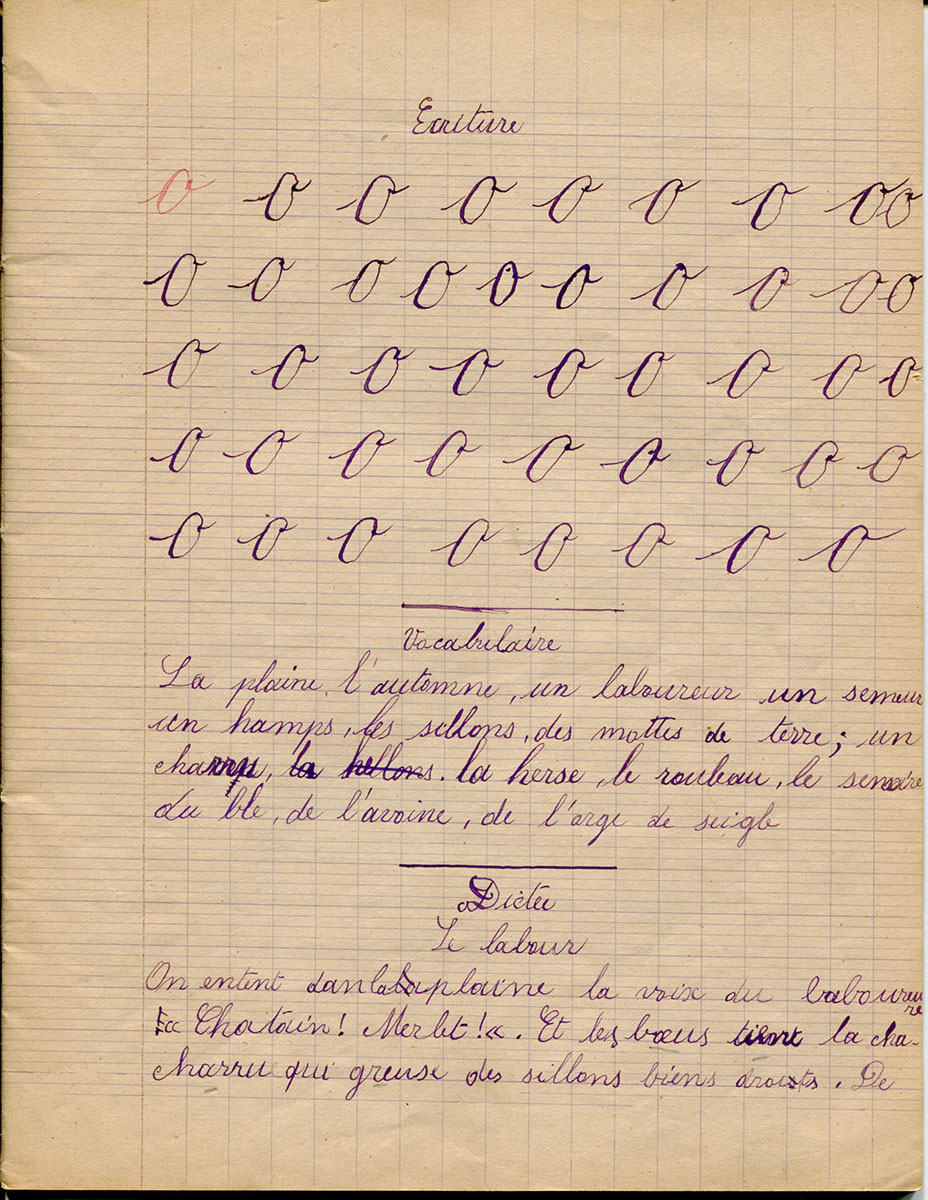 Ecriture
O O O O O O O O O
O O O O O O O O O O
O O O O O O O O O
O O O O O O O O O
O O O O O O O O
Vocabulaire
La plaine, l'automne, un laboureur un semeur
un hamps, les sillons, des mottes de terre; un
charru, la hellons. la herse, le rouleau, le
du ble, de l'avoine, de l'orge de seigle
Dictée
Le labour
On entent danla plaine la voix du laboureure
« Chatain! Merlet! «. Et les bœus tirent la cha-
charru qui greuse des sillons biens droits. De